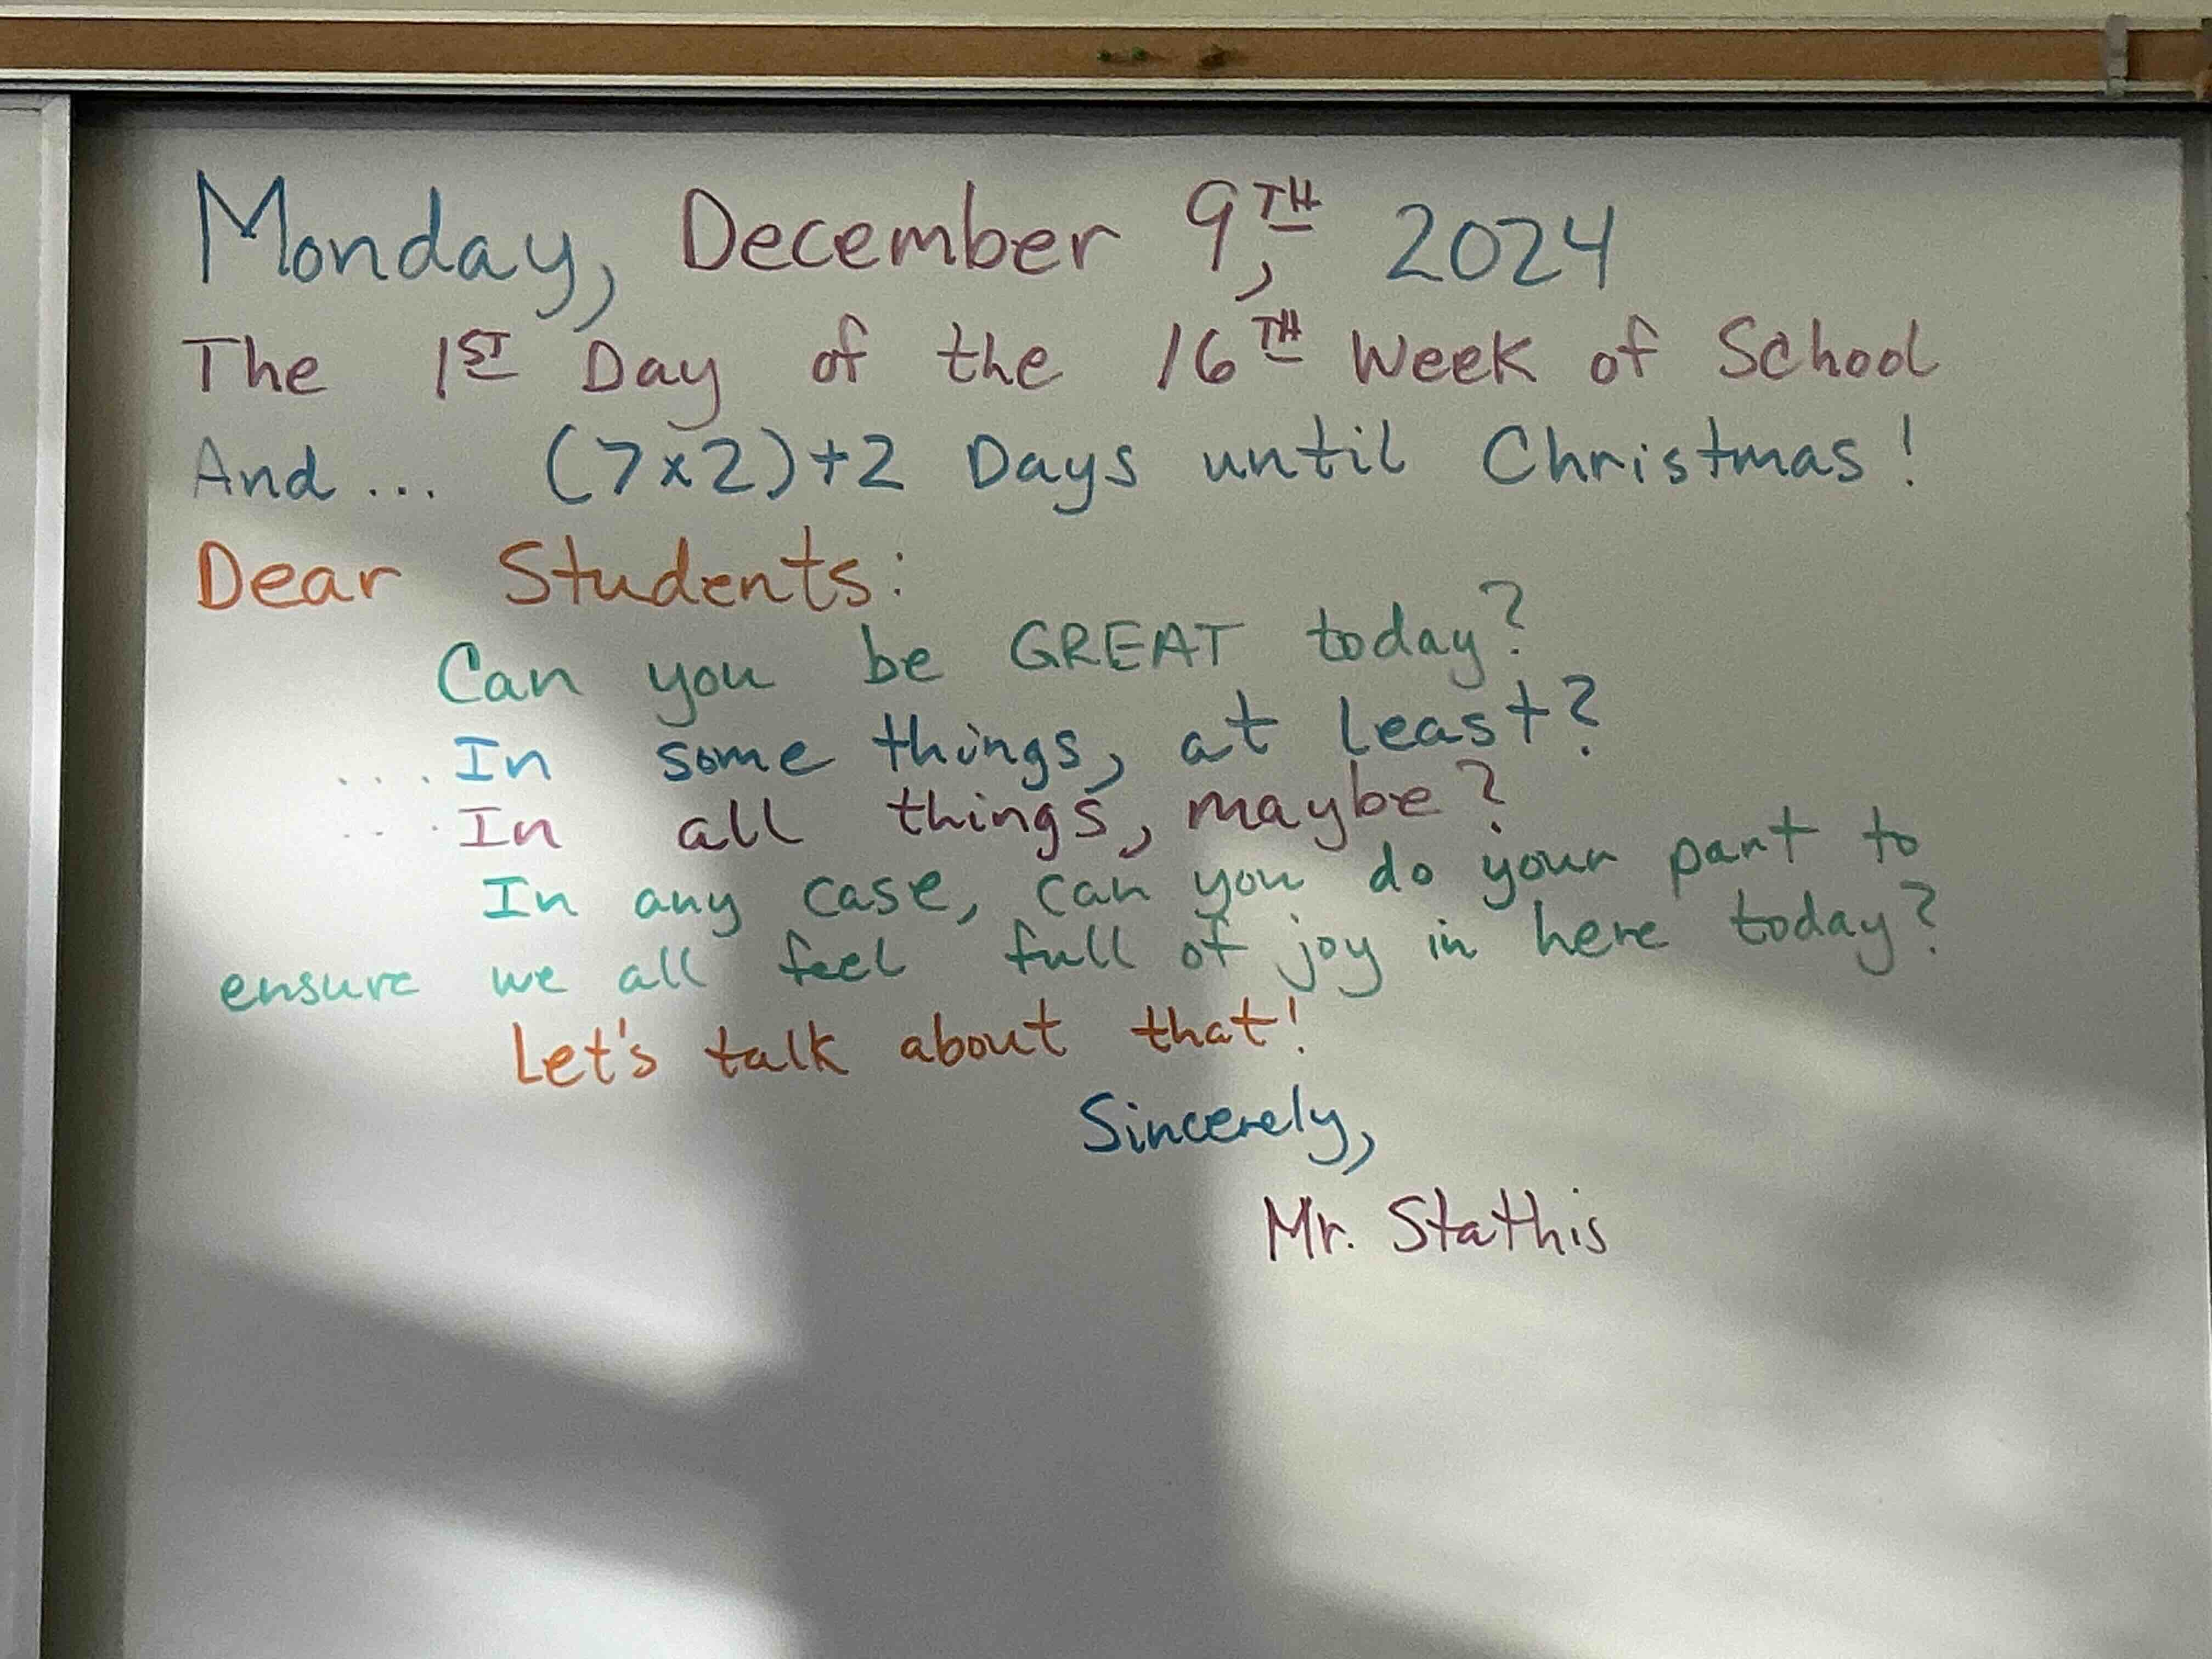 Monday, December 9TH, 2024
The 1ST Day of the 16TH Week of School
And... (7x2)+2 Days until Christmas!
Dear Students:
Can you be GREAT today?
....In some things, at least?
....In all things, maybe?
In any case, can you do your part to
ensure we all feel full of joy in here today?
Let's talk about that!
Sincerely,
Mr. Stathis